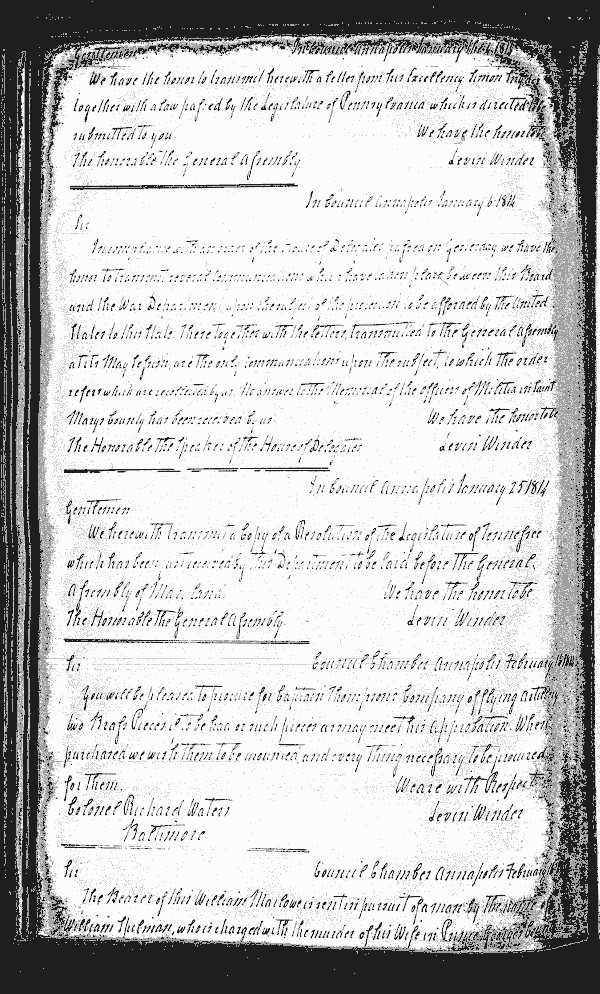 Gentlemen In Council Annapolis January the 6 1814
We have the honor to transmit herewith a letter from his Excellency Simon Snyder
together with a law passed by the Legislature of Pennsylvania which is directed to be
submitted to you We have the honor to be
The honorable The General Assembly Levin Winder
In Council Annapolis January 6 1814
Sir
In compliance with an order of the House of Delegates passed on yesterday, we have the
honor to transmit several communications which have taken place between this Board
and the War Department upon the subject of the protection to be afforded by the United
States to this State. These together with the letters, transmitted to the General Assembly
at its May Session, are the only communications upon the subject, to which the order
refers which are recollected by us. No answer to the Memorial of the officers of Militia in Saint
Marys County has been received by us. We have the honor to be
The Honorable The Speaker of the House of Delegates Levin Winder
In Council Annapolis January 25 1814
Gentlemen
We herewith transmit a Copy of a Resolution of the Legislature of Tennessee
which has been just received by this Department to be laid before the General
Assembly of Maryland We have the honor to be
The Honorable the General Assembly Levin Winder
Sir Council Chamber Annapolis February
You will be pleased to procure for Captain Thompson's Company of flying Artillery
two Brass Pieces if to be had or such pieces as may meet his approbation. When
purchased we wish them to be mounted and every thing necessary to be procured
for them. We are with Respect
Colonel Richard Waters Levin Winder
Baltimore
Sir Council Chamber Annapolis February
The Bearer of this William Marlowe is sent in pursuit of a man by the name of
William Spilman, who is charged with the murder of his Wife in Prince Georges County